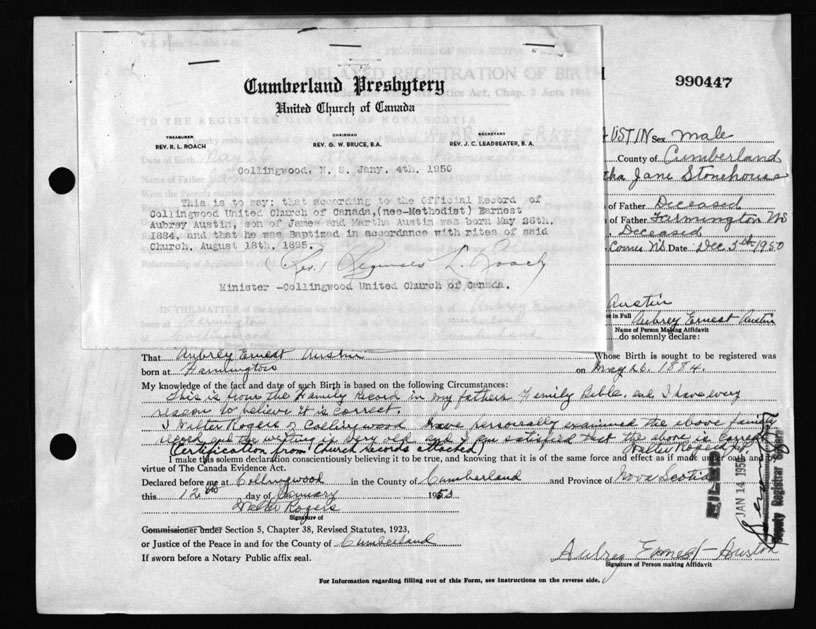 990447
Cumberland Presbytery
United Church of Canada
TREASURER
REV. R. L. ROACH
CHAIRMAN
REV. G. W. BRUCE, B.A.
SECRETARY
REV. J. C. LEADBEATER, B. A.
Collingwood, N. S. Jany. 4th. 1950
This is to say: that according to the Official Record of
Collingwood United Church of Canada, (nee-Methodist) Earnest
Aubrey Austin, son of James and Martha Austin was born May 26th.
1884, and that he was Baptized in accordance with rites of said
Church. August 18th. 1895.
Minister -Collingwood United Church of Canada.
Sex male
County of Cumberland
Jane Stonehouse
of Father Deceased
of Father Farmington NS
Deceased
Date: Dec 5th 1950
Austin
in Full Aubrey Ernest Austin
Name of Person Making Affidavit
do solemnly declare:
That Aubrey Ernest Austin Whose Birth is sought to be registered was
born at on May 26. 1884.
My knowledge of the fact and date of such Birth is based on the following Circumstances:
This is from the Family Record in my fathers Family Bible. and I have every
reason to believe it is correct.
I Walter Rogers of Collingwood have personally examined the above family
record and the writing is very old and I am satisfied that the above is correct
(Certification from Church records attached) Walter Rogers
I make this solemn declaration conscientiously believing it to be true, and knowing that it is of the same force and effect as if made under oath and by
virtue of The Canada Evidence Act.
Declared before me at Collingwood in the County of Cumberland and Province of Nova Scotia
this 12th day of January
Walter Rogers
Signature of
Commissioner under Section 5, Chapter 38, Revised Statutes, 1923,
or Justice of the Peace in and for the County of Cumberland
If sworn before a Notary Public affix seal.
Aubrey Ernest Austin
Signature of Person making Affidavit
For Information regarding filling out of this Form, see Instructions on the reverse side.
FILED
Deputy Registrar General